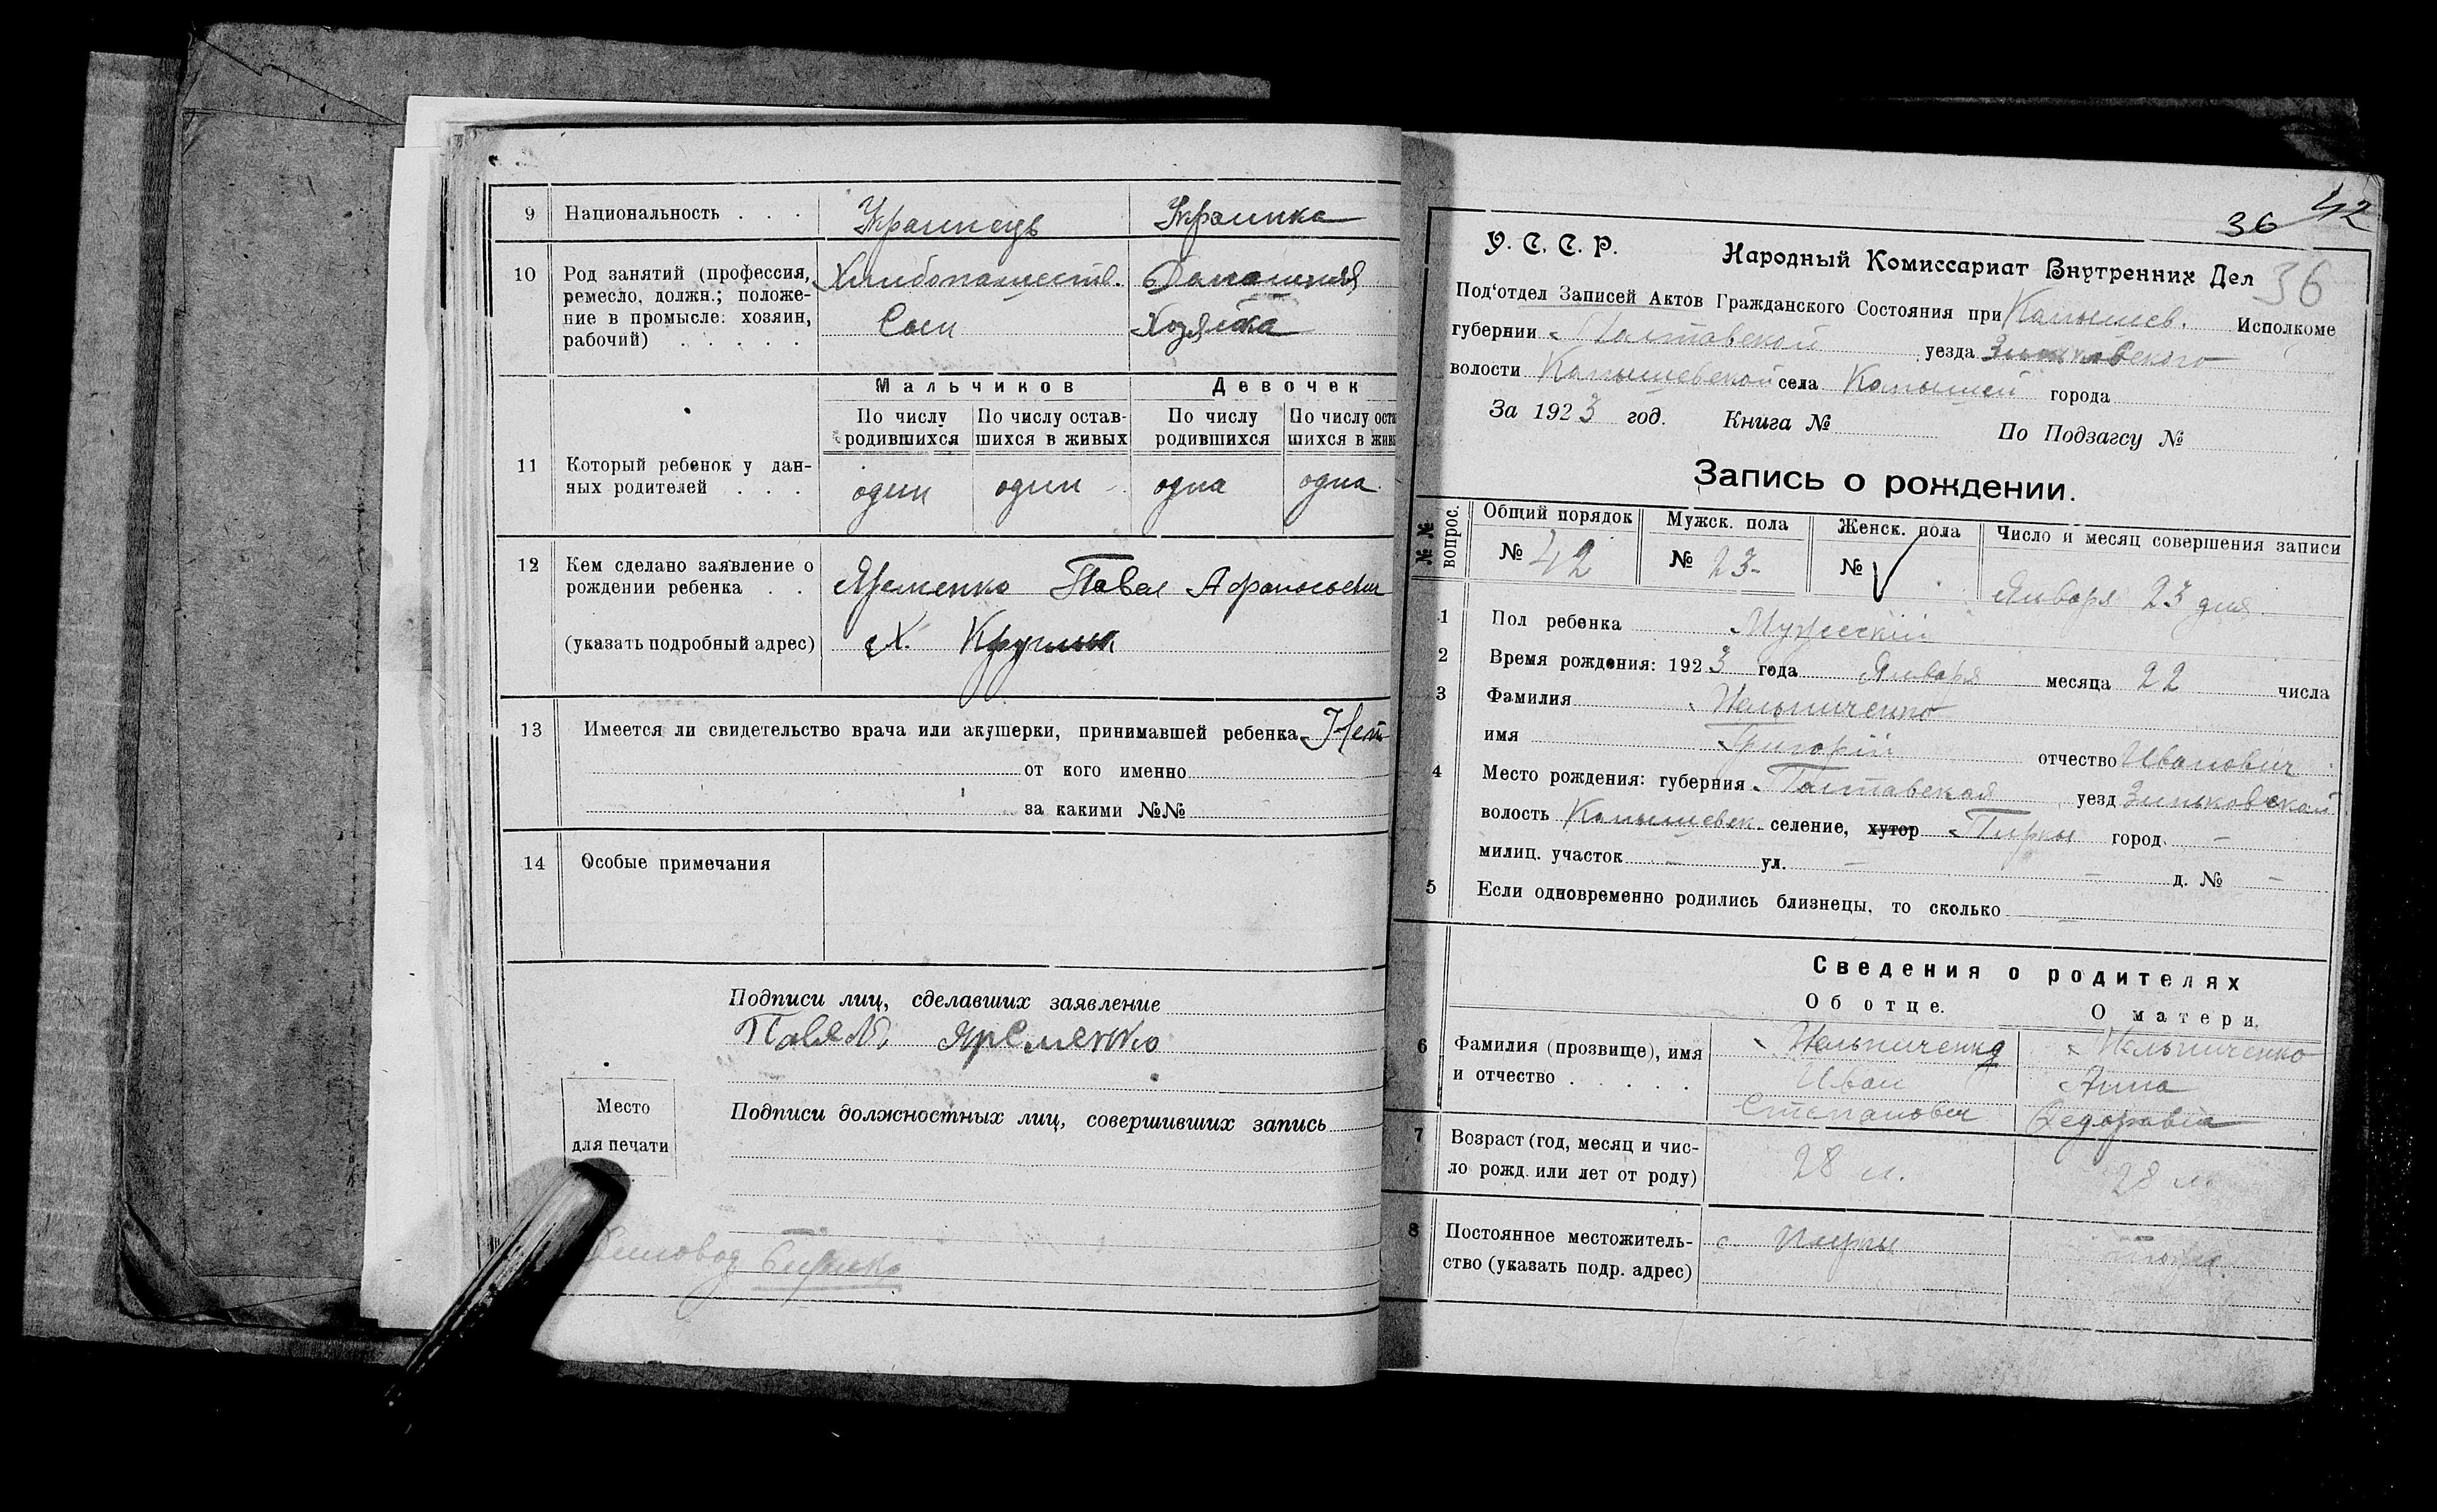 9 Национальность . . . Украинець Украинка
10 Род занятий (профессия, Хлибопашеств. Домашняя
ремесло, должн.; положе-
ние в промысле: хозяин, Сам Хозяйка
рабочий) . . . . .
Мальчиков Девочек
По числу По числу остав- По числу По числу оста
родившихся шихся в живых родившихся шихся в живы
11 Который ребенок у дан-
ных родителей . . . один один одна одна
12 Кем сделано заявление о
рождении ребенка . . Яременко Павел Афанасьевич
(указать подробный адрес) Х.
13 Имеется ли свидетельство врача или акушерки, принимавшей ребенка Нет
от кого именно
за какими №№
14 Особые примечания
Подписи лиц, сделавших заявление
Яременко
Место
для печати
Подписи должностных лиц, совершивших запись
42
36
У. С. С. Р. Народный Комиссариат Внутренних Дел 36
Под‘отдел Записей Актов Гражданского Состояния при Исполкоме
губернии Полтавской уезда Зиньковского
волости села города
За 1923 год. Книга № По Подзагсу №
Запись о рождении.
№№ вопрос. Общий порядок Мужск. пола Женск. пола Число и месяц совершения записи
№ 42 № 23- № Января 23 дня
1 Пол ребенка Мужеский
2 Время рождения: 1923 года Января месяца 22 числа
3 Фамилия
имя Григорий отчество Иванович
4 Место рождения: губерния Полтавская уезд Зиньковской
волость селение, хутор город. -
милиц. участок - ул. - - д. № -
5 Если одновременно родились близнецы, то сколько
Сведения о родителях
Об отце. О матери.
6 Фамилия (прозвище), имя
и отчество . . . . . Иван Анна
Степанович
7 Возраст (год, месяц и чис-
ло рожд. или лет от роду) 28 л. 28 л.
8 Постоянное местожитель-
ство (указать подр. адрес)